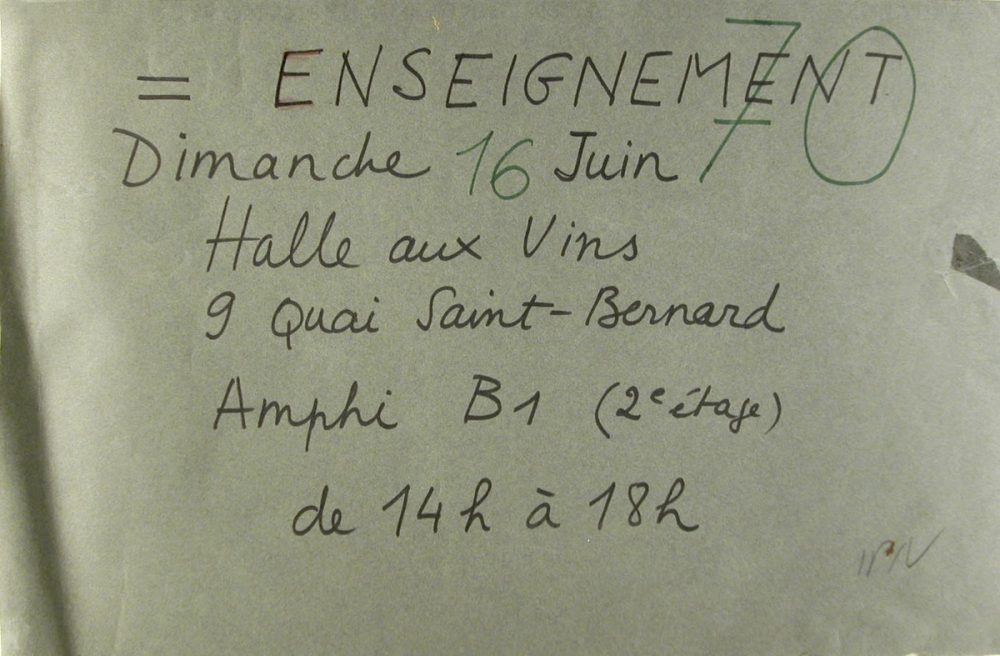 = ENSEIGNEMENT
Dimanche 16 Juin
Halle aux Vins
9 Quai Saint-Bernard
Amphi B1 (2e étage)
de 14h à 18h